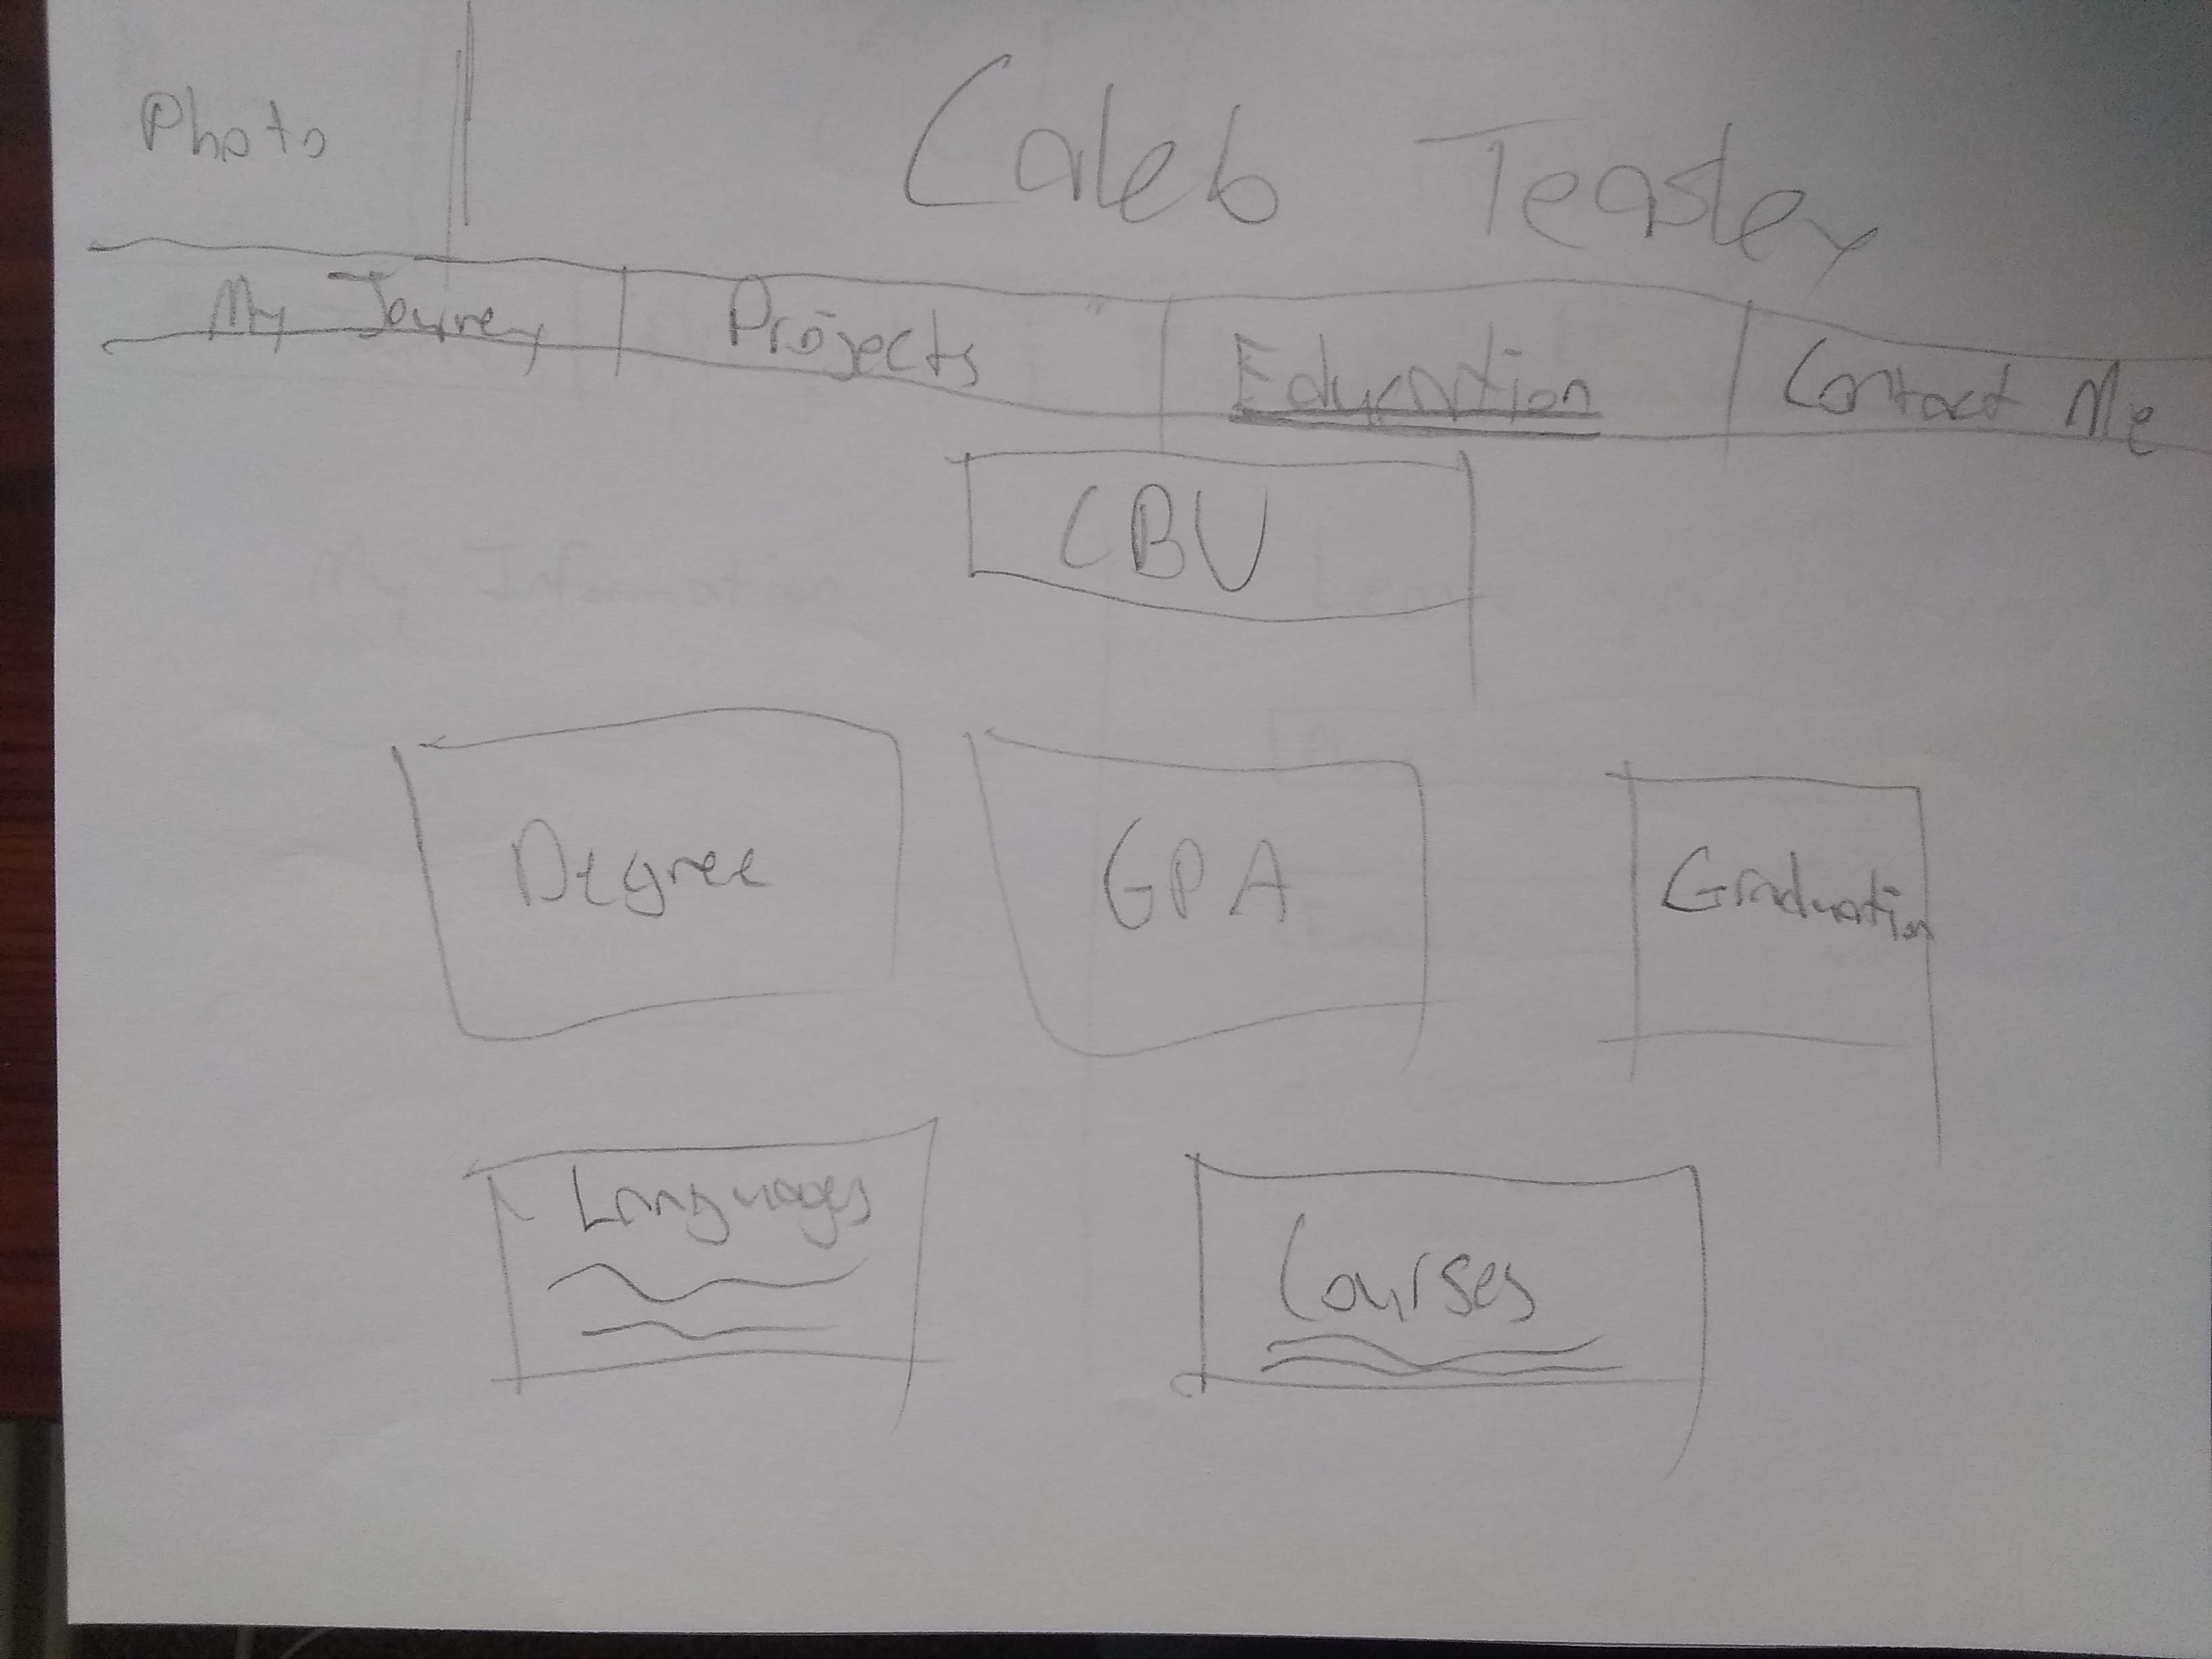 Photo
Caleb Teasley
My Journey Projects Education Contact Me
CBU
My Information
Degree GPA Graduation
Languages
Courses